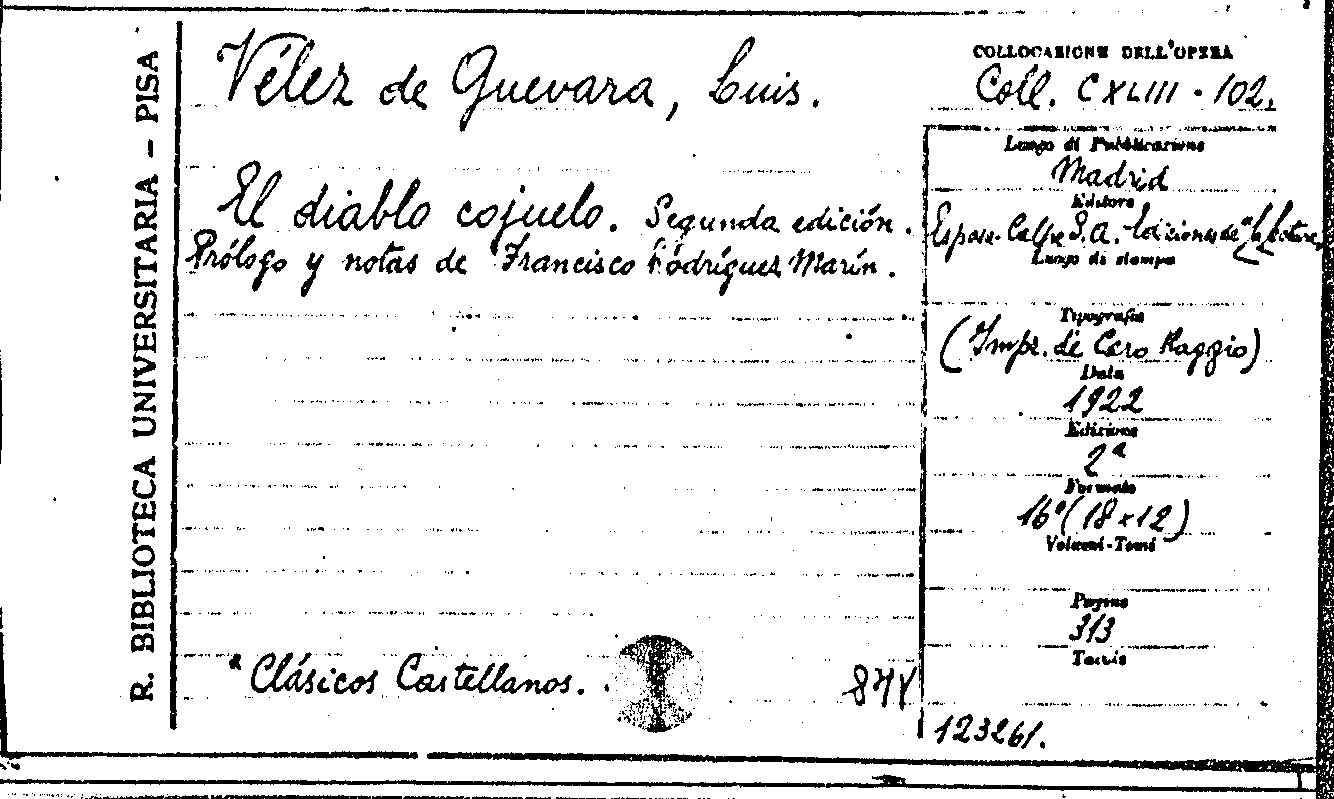 R. BIBLIOTECA UNIVERSITARIA - PISA
Vélez de Guevara, Luis.
El diablo cojuelo. Segunda edición.
Prólogo y notas de Francisco Rodríguez Marín.
"Clásicos Castellanos.
COLLOCAZIONE DELL'OPERA
Coll. CXLIII - 102.
Luogo di Pubblicazione
Madrid
Editore
Espasa-Calpe S.A. - Ediciones de "La Lectura
Luogo di stampa
Tipografia
(Impr. de Caro Raggio)
Data
1922
Edizione
2ª
Formato
16º (18x12)
Volumi-Tomi
Pagine
313
Tavole
123261.